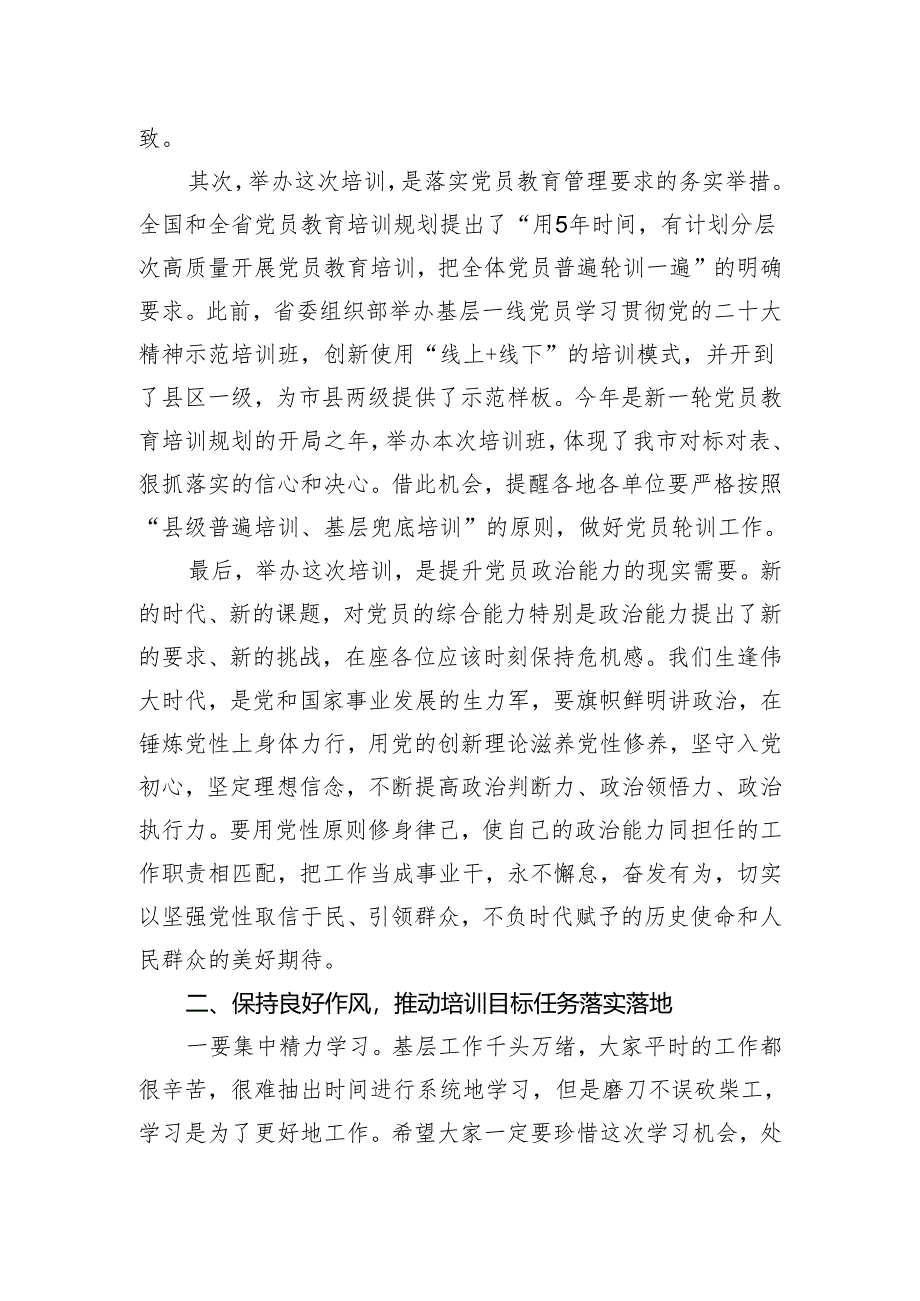 致。
其次，举办这次培训，是落实党员教育管理要求的务实举措。
全国和全省党员教育培训规划提出了“用5年时间，有计划分层
次高质量开展党员教育培训，把全体党员普遍轮训一遍”的明确
要求。此前，省委组织部举办基层一线党员学习贯彻党的二十大
精神示范培训班，创新使用“线上+线下”的培训模式，并开到
了县区一级，为市县两级提供了示范样板。今年是新一轮党员教
育培训规划的开局之年，举办本次培训班，体现了我市对标对表、
狠抓落实的信心和决心。借此机会，提醒各地各单位要严格按照
“县级普遍培训、基层兜底培训”的原则，做好党员轮训工作。
最后，举办这次培训，是提升党员政治能力的现实需要。新
的时代、新的课题，对党员的综合能力特别是政治能力提出了新
的要求、新的挑战，在座各位应该时刻保持危机感。我们生逢伟
大时代，是党和国家事业发展的生力军，要旗帜鲜明讲政治，在
锤炼党性上身体力行，用党的创新理论滋养党性修养，坚守入党
初心，坚定理想信念，不断提高政治判断力、政治领悟力、政治
执行力。要用党性原则修身律己，使自己的政治能力同担任的工
作职责相匹配，把工作当成事业干，永不懈怠，奋发有为，切实
以坚强党性取信于民、引领群众，不负时代赋予的历史使命和人
民群众的美好期待。
二、保持良好作风，推动培训目标任务落实落地
一要集中精力学习。基层工作千头万绪，大家平时的工作都
很辛苦，很难抽出时间进行系统地学习，但是磨刀不误砍柴工，
学习是为了更好地工作。希望大家一定要珍惜这次学习机会，处